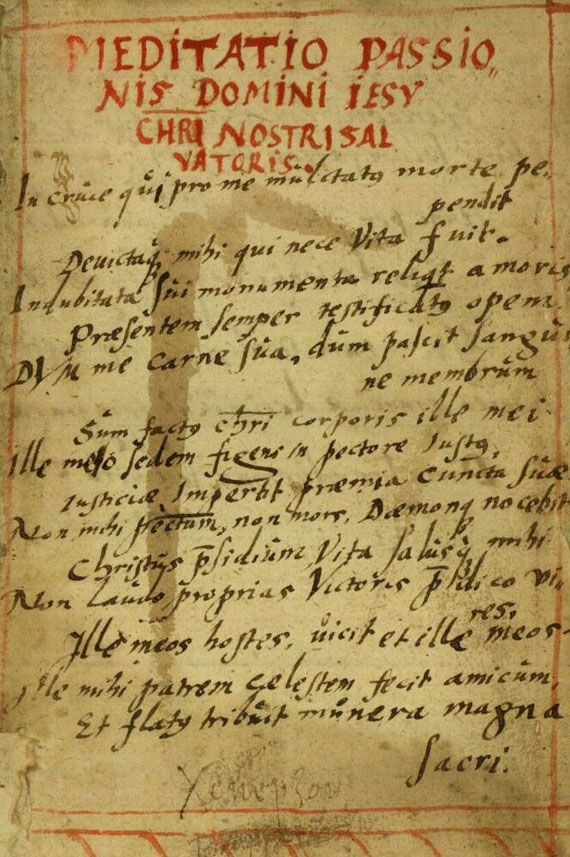 MEDITATIO PASSIO
NIS DOMINI IESV
CHRI NOSTRI SAL
VATORIS.
In cruce qui pro me mulctatꝰ morte pe.
pendit
Devictaq̃ mihi qui nece Vita fuit.
Indubitata sui monumenta reliqt amoris
Præsentem semper testificatꝰ opem.
DVm me carne sua, dum pascit sangui
ne membrum
Sum factꝰ chri corporis ille mei.
Ille meo sedem figens in pectore Iustꝰ,
Iusticiæ Impertit præmia cuncta suæ
Non mihi pctum, non mors, Dæmonq nocebit
Christꝰ psidium Vita salusq mihi
Non laudo proprias Victoris prædico vi-
res,
Ille meos hostes, vicit et ille meos.
Ille mihi patrem celestem fecit amicum,
Et flatꝰ tribuit munera magna
sacri.
Xenophon